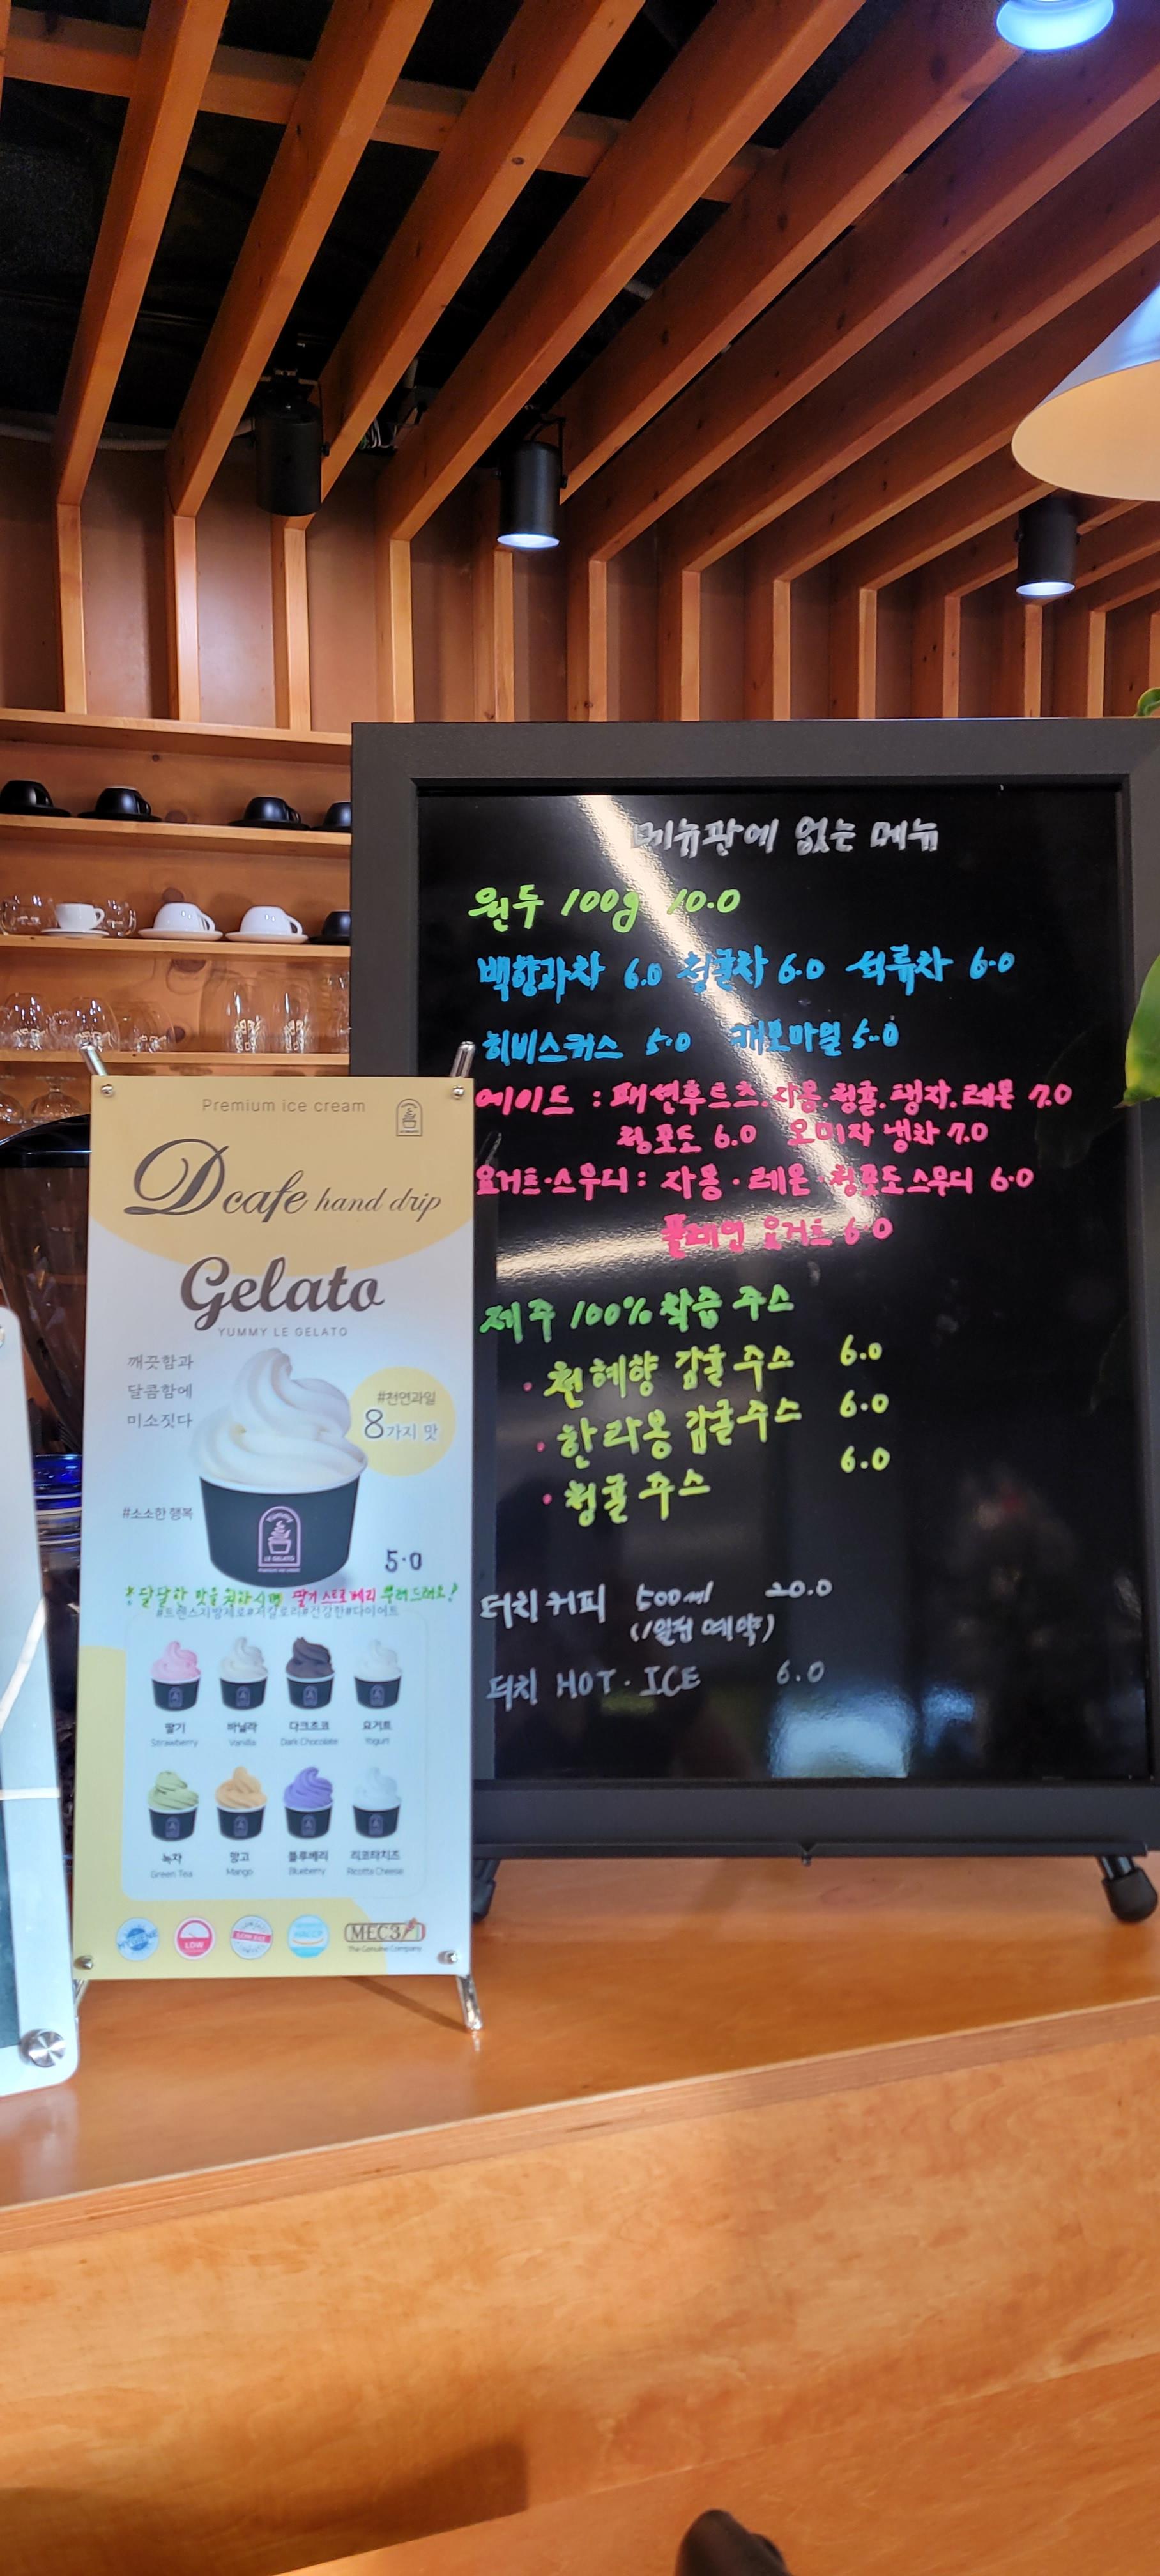 메뉴판에 없는 메뉴
원두 100g 10.0
백향과차 6.0 청귤차 6.0 석류차 6.0
히비스커스 5.0 캐모마일 5.0
에이드 : 패션후르츠. 자몽. 청귤. 탱자. 레몬 7.0
청포도 6.0 오미자 냉차 7.0
요거트·스무디 : 자몽·레몬·청포도스무디 6.0
플레인 요거트 6.0
제주 100% 착즙 주스
· 천혜향 감귤주스 6.0
· 한라봉 감귤주스 6.0
· 청귤주스 6.0
더치커피 500ml 20.0
(1일전 예약)
더치 HOT·ICE 6.0
Premium ice cream
Dcafe hand drip
Gelato
YUMMY LE GELATO
깨끗함과
달콤함에
미소짓다
#천연과일
8가지 맛
#소소한 행복
5.0
달달한 맛을 원하시면 딸기스트로베리 뿌려드려요!
#트랜스지방제로#저칼로리#건강한#다이어트
딸기 바닐라 다크초코 요거트
Strawberry Vanilla Dark Chocolate Yogurt
녹차 망고 블루베리 리코타치즈
Green Tea Mango Blueberry Ricotta Cheese
LOW
MEC3
The Genuine Company